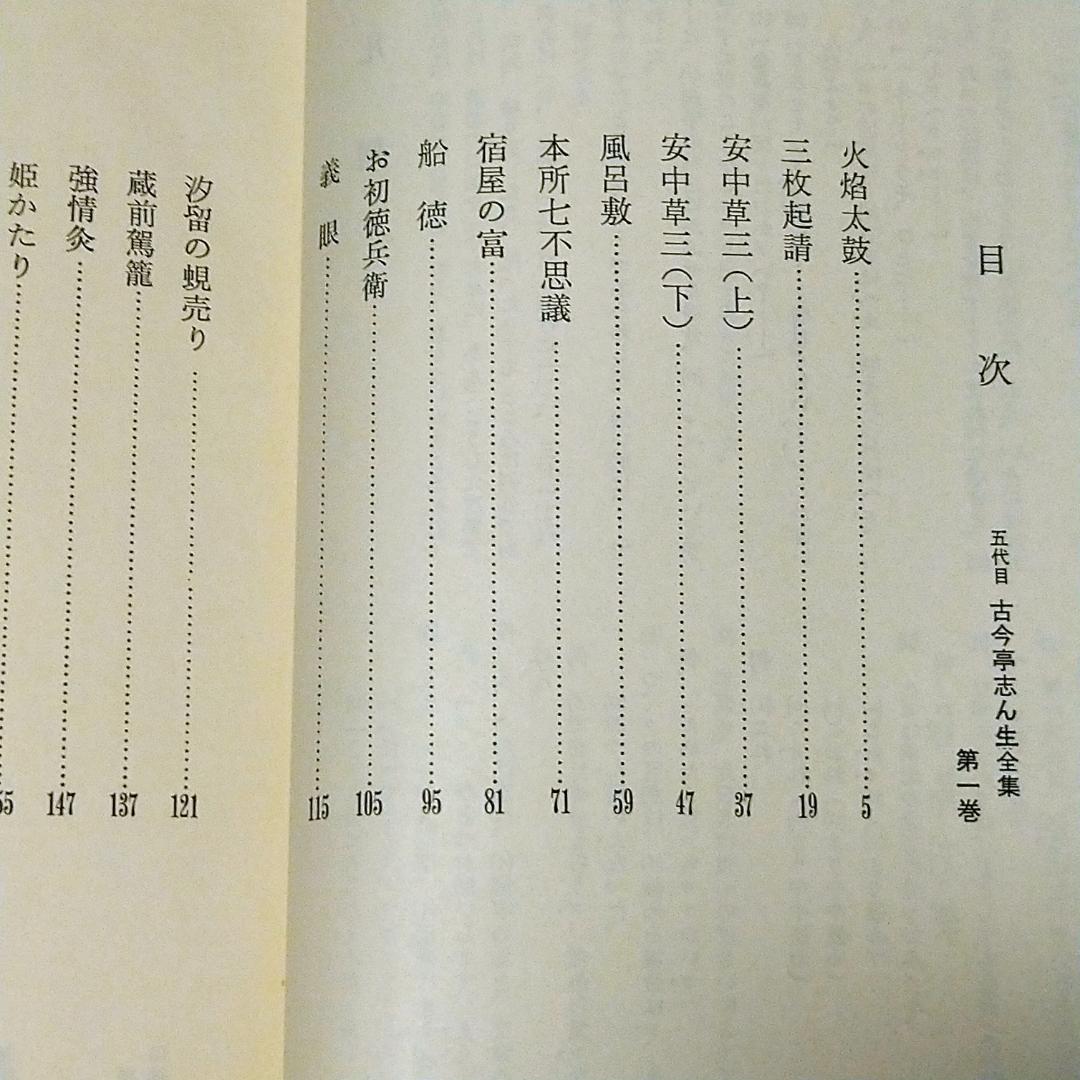 目次
五代目 古今亭志ん生全集
第一巻
火焰太鼓……5
三枚起請……19
安中草三（上）……37
安中草三（下）……47
風呂敷……59
本所七不思議……71
宿屋の富……81
船徳……95
お初徳兵衛……105
義眼……115
汐留の蜆売り……121
蔵前駕籠……137
強情灸……147
姫かたり……55